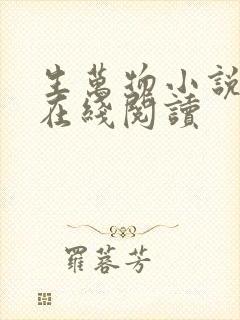 生萬物小說
在綫閱讀
羅蓉芳